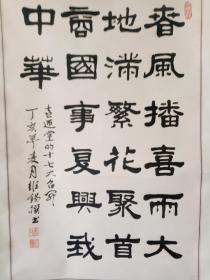 春風播喜雨大
地滿繁花聚首
商國事复興我
中華
喜迎黨的十七大召開
丁亥年夏月維錫撰書